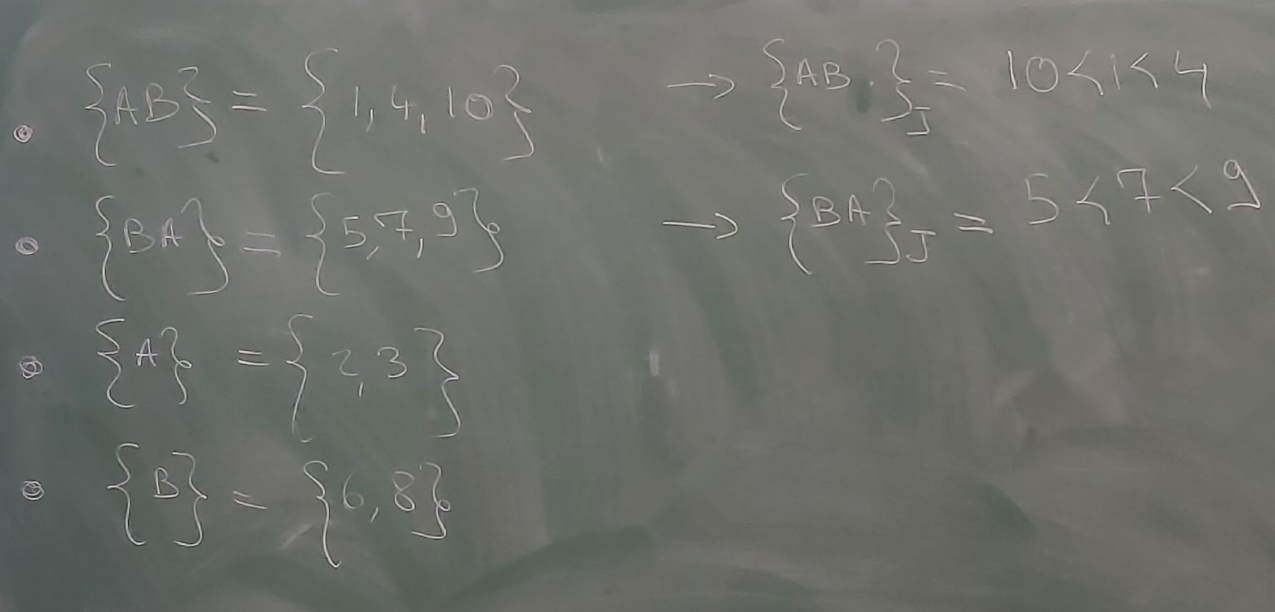 • {AB} = {1, 4, 10} → {AB.}_J = 10 < 1 < 4
• {BA} = {5, 7, 9} → {BA}_J = 5 < 7 < 9
• {A} = {2, 3}
• {B} = {6, 8}